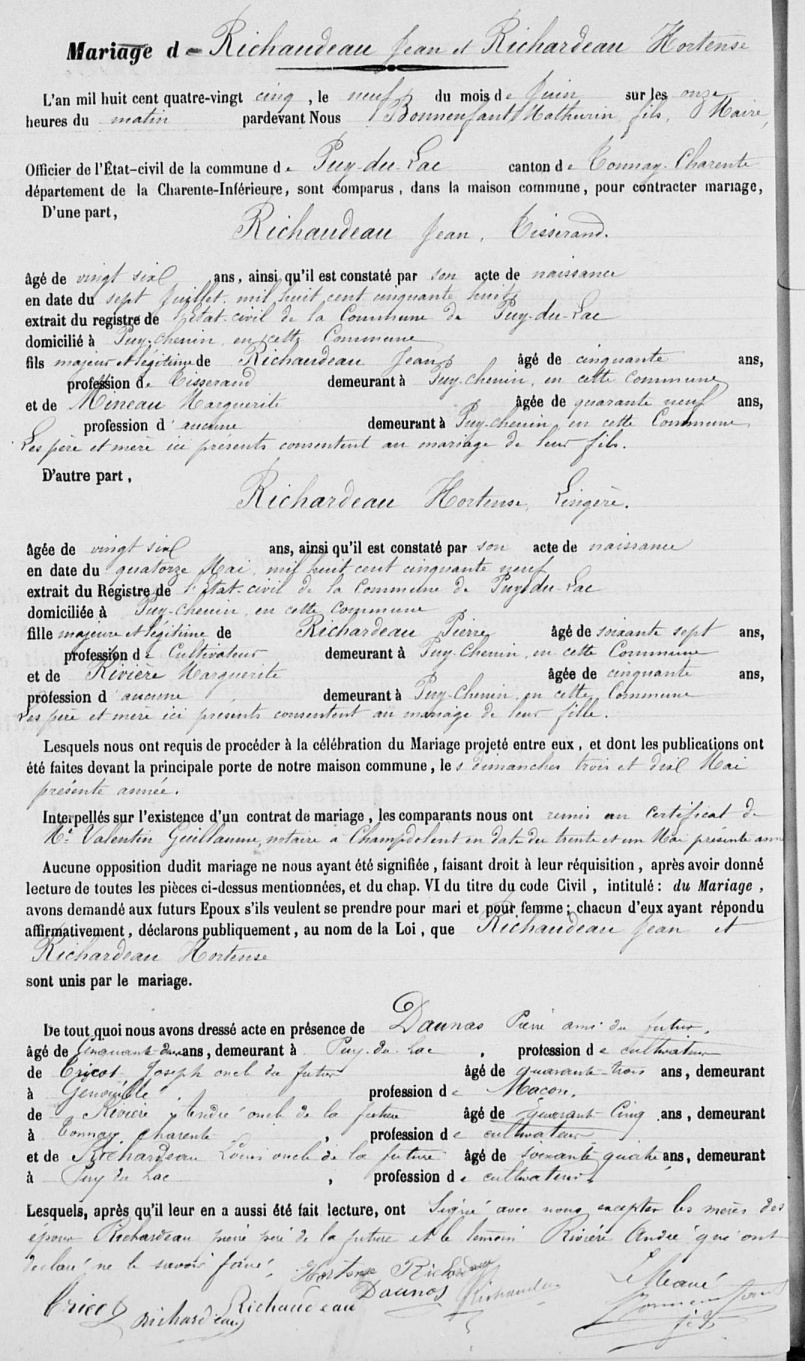 Mariage de Richaudeau Jean et Richardeau Hortense
L'an mil huit cent quatre-vingt cinq, le neuf du mois de Juin sur les onze
heures du matin pardevant Nous Bonnenfant Mathurin fils, Maire,
Officier de l'État-civil de la commune de Puy-du-Lac canton de Tonnay-Charente
département de la Charente-Inférieure, sont comparus, dans la maison commune, pour contracter mariage,
D'une part,
Richaudeau Jean, Tisserand.
âgé de vingt six ans, ainsi qu'il est constaté par son acte de naissance
en date du sept Juillet mil huit cent cinquante huit
extrait du registre de l'État-civil de la Commune de Puy-du-Lac
domicilié à Puy-chenin, en cette Commune
fils majeur et légitime de Richaudeau Jean âgé de cinquante ans,
profession de Tisserand demeurant à Puy-chenin, en cette Commune
et de Mineau Marguerite âgée de quarante neuf ans,
profession d'aucune demeurant à Puy-chenin en cette Commune
Les père et mère ici présents consentent au mariage de leur fils.
D'autre part,
Richardeau Hortense, Lingère.
âgée de vingt six ans, ainsi qu'il est constaté par son acte de naissance
en date du quatorze Mai mil huit cent cinquante neuf
extrait du Registre de l'État-civil de la Commune de Puy-du-Lac
domiciliée à Puy-chenin, en cette commune
fille majeure et légitime de Richardeau Pierre âgé de soixante sept ans,
profession de Cultivateur demeurant à Puy-Chenin, en cette Commune
et de Rivière Marguerite âgée de cinquante ans,
profession d'aucune demeurant à Puy-Chenin, en cette Commune
Les père et mère ici présents consentent au mariage de leur fille.
Lesquels nous ont requis de procéder à la célébration du Mariage projeté entre eux, et dont les publications ont
été faites devant la principale porte de notre maison commune, les dimanches trois et dix Mai
présente année.
Interpellés sur l'existence d'un contrat de mariage, les comparants nous ont remis un certificat de
Me Valentin Guillaume, notaire à Champdolent en date du trente et un Mai présente année
Aucune opposition dudit mariage ne nous ayant été signifiée, faisant droit à leur réquisition, après avoir donné
lecture de toutes les pièces ci-dessus mentionnées, et du chap. VI du titre du code Civil, intitulé : du Mariage,
avons demandé aux futurs Epoux s'ils veulent se prendre pour mari et pour femme ; chacun d'eux ayant répondu
affirmativement, déclarons publiquement, au nom de la Loi, que Richaudeau Jean et
Richardeau Hortense
sont unis par le mariage.
De tout quoi nous avons dressé acte en présence de Daunas Pierre ami du futur,
âgé de Cinquante deux ans, demeurant à Puy-du-Lac, profession de cultivateur
de Cricot Joseph oncle du futur âgé de quarante-trois ans, demeurant
à Genouillé, profession de Maçon.
de Rivière André oncle de la future âgé de quarant-Cinq ans, demeurant
à Tonnay Charente, profession de cultivateur
et de Richardeau Louis oncle de la future âgé de soixante quatre ans, demeurant
à Puy du Lac, profession de cultivateur
Lesquels, après qu'il leur en a aussi été fait lecture, ont Signé avec nous excepter les mères des
époux Richardeau pierre père de la future et le témoin Rivière André qui ont
déclaré ne le savoir faire.
Hortense Richardeau Le Maire
Cricot Richardeau Richaudeau Daunas Richaudeau Bonnenfant
fils